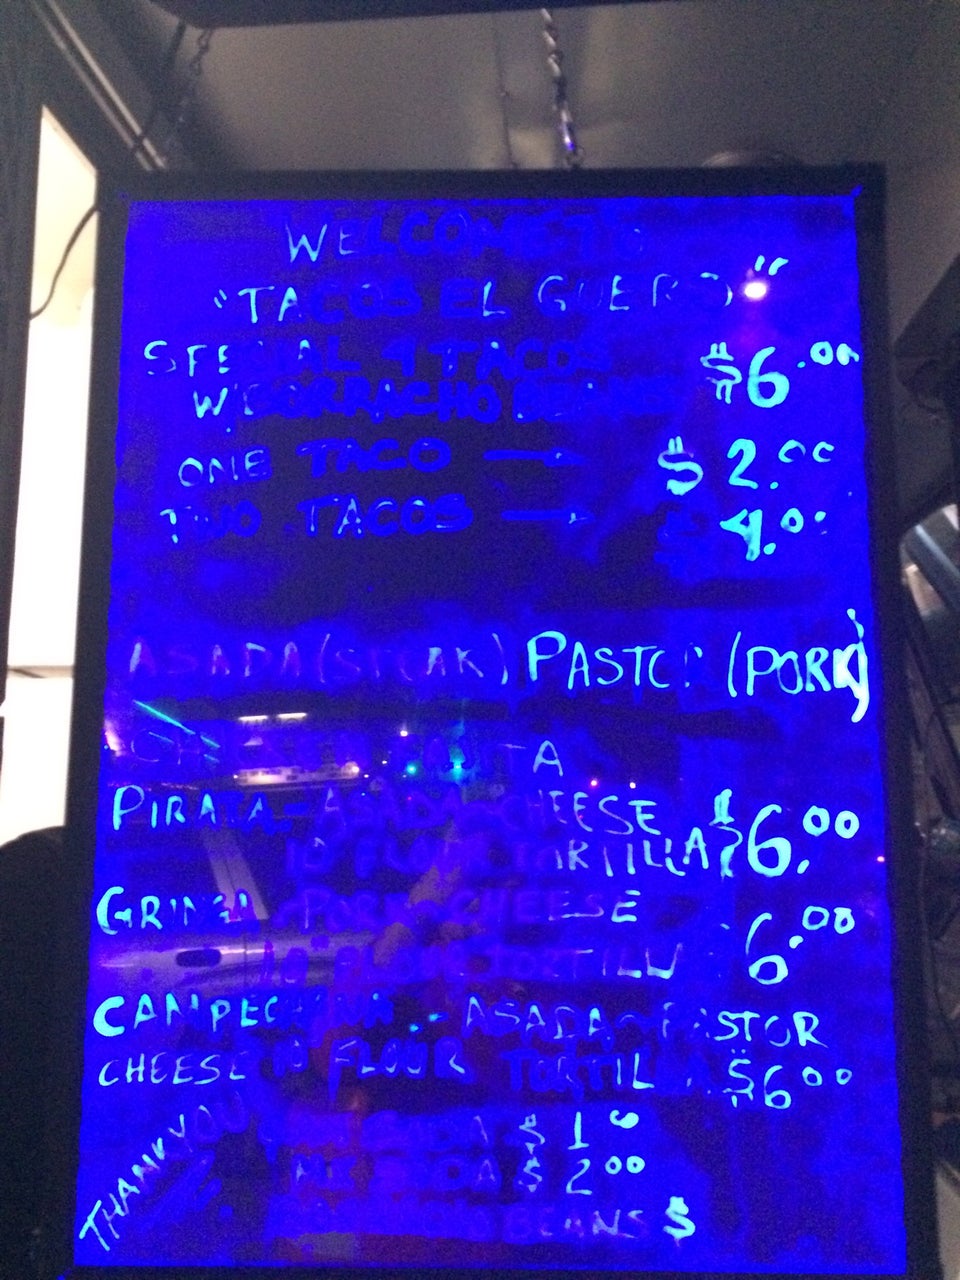 WELCOME TO
"TACOS EL GUERO"
SPECIAL 4 TACOS $6.00
W/BORRACHO BEANS
ONE TACO → $2.00
TWO TACOS → $4.00
ASADA (STEAK) PASTOR (PORK)
CHICKEN FAJITA
PIRATA - ASADA - CHEESE $6.00
10 FLOUR TORTILLA
GRINGA - PORK - CHEESE 6.00
10 FLOUR TORTILLA
CAMPECHANA - ASADA - PASTOR
CHEESE 10 FLOUR TORTILLA $6.00
THANK YOU
SODA $1.00
MX SODA $2.00
BORRACHO BEANS $